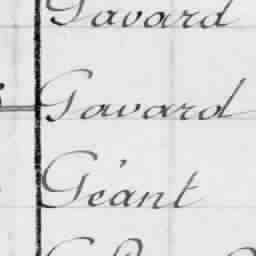 Gavard
Gavard
Géant